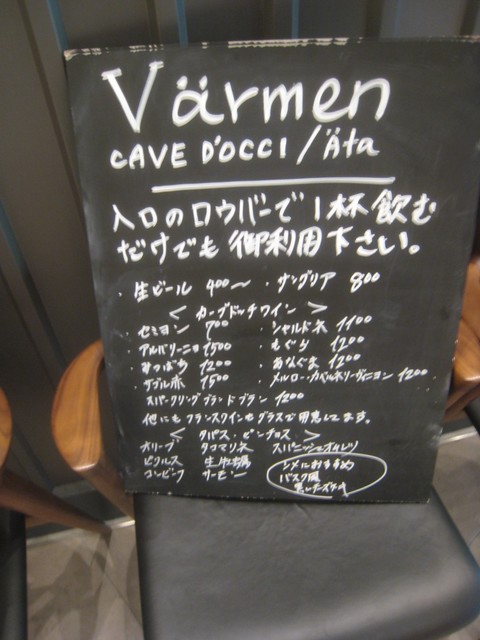 Värmen
CAVE D'OCCI / Äta
入口のロウバーで1杯飲む
だけでも御利用下さい。
・生ビール 400〜 ・サングリア 800
＜カーブドッチワイン＞
・セミヨン 700 ・シャルドネ 1100
・アルバリーニョ 1500 ・もぐら 1200
・みつばち 1200 ・あなぐま 1200
・サブル赤 1500 ・メルロー・カベルネソーヴィニヨン 1200
スパークリングブランドブラン 1200
他にもフランスワインもグラスで用意してます。
＜タパス・ピンチョス＞
オリーブ タコマリネ スパニッシュオムレツ
ピクルス 生牡蠣 シメにおすすめ
コンビーフ サーモン バスク風
黒いチーズケーキ